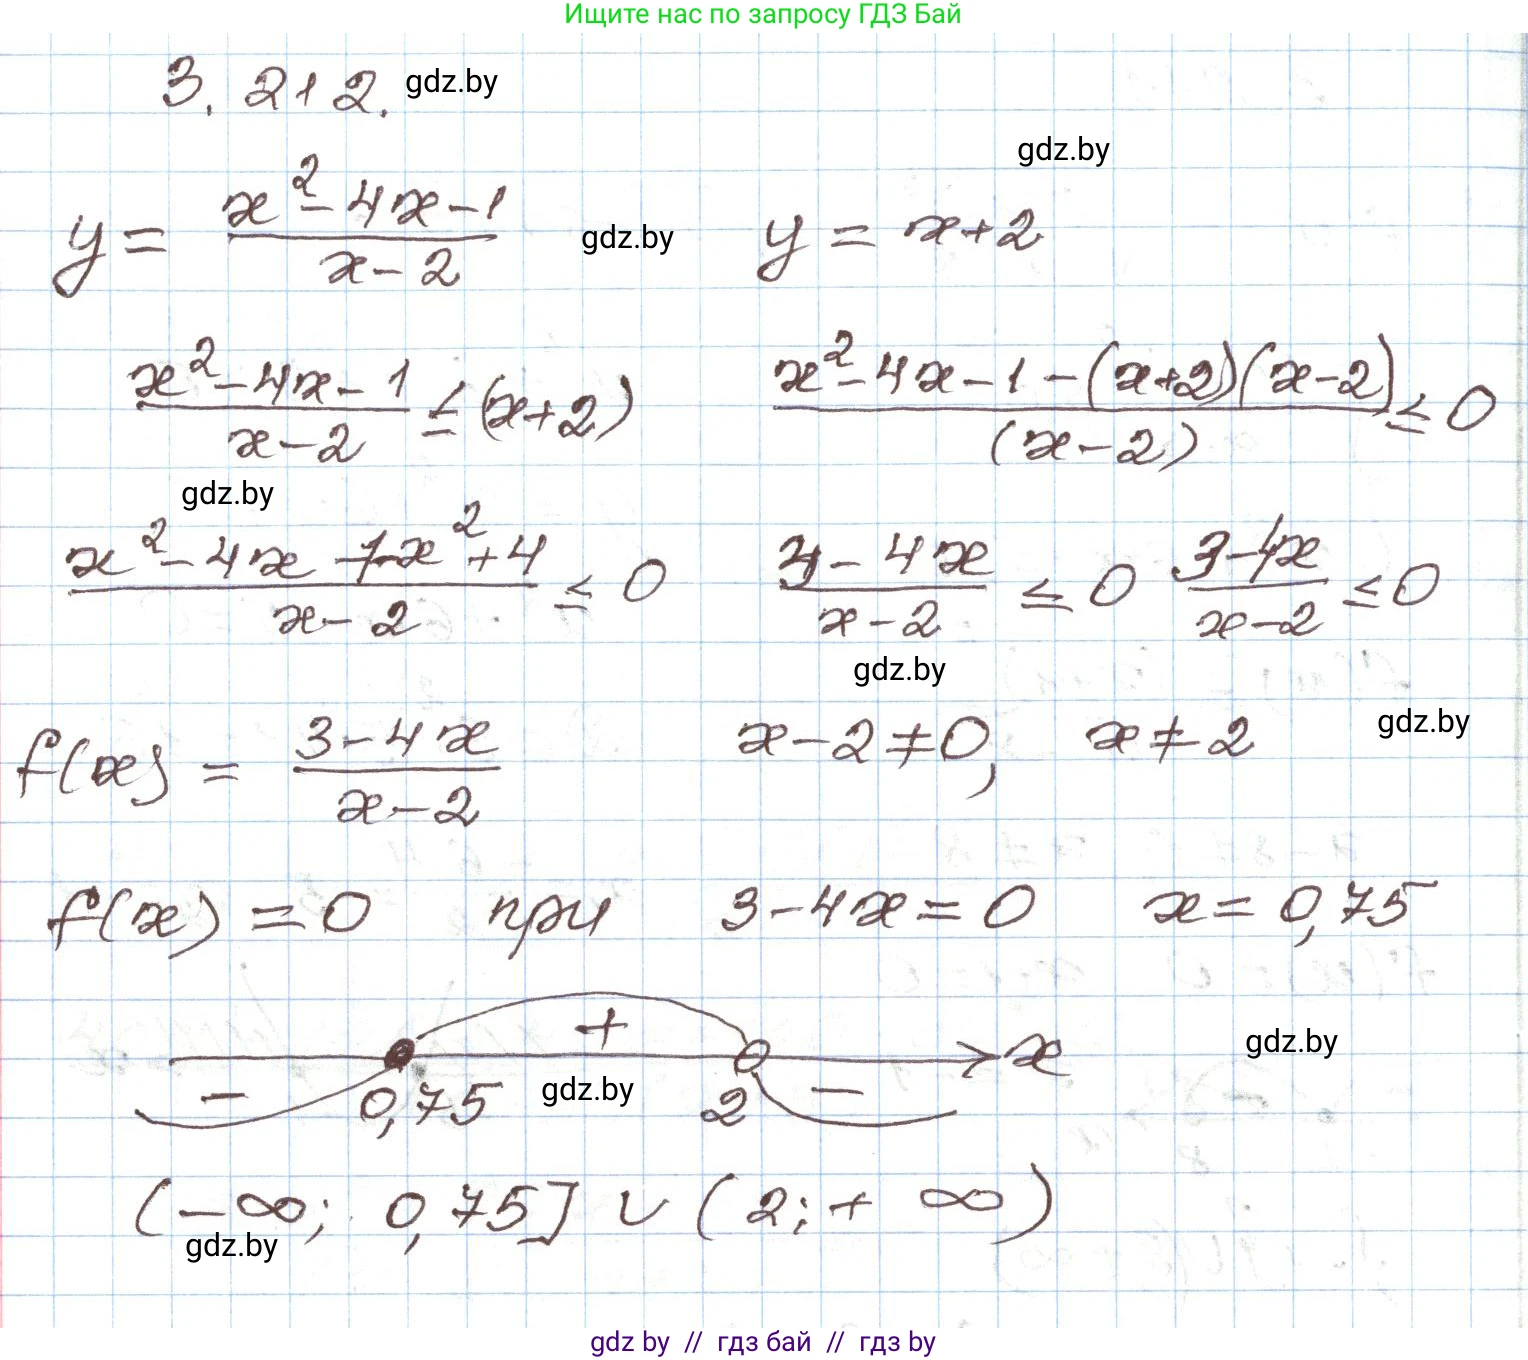 Ищите нас по запросу ГДЗ Бай
3. 212. gdz.by
gdz.by
y = (x² - 4x - 1)/(x - 2) gdz.by y = x + 2
(x² - 4x - 1)/(x - 2) ≤ (x + 2) (x² - 4x - 1 - (x+2)(x-2))/((x - 2)) ≤ 0
gdz.by
(x² - 4x - 1 - x² + 4)/(x - 2) ≤ 0 (3 - 4x)/(x - 2) ≤ 0 (3 - 4x)/(x - 2) ≤ 0
gdz.by
f(x) = (3 - 4x)/(x - 2) x - 2 ≠ 0, x ≠ 2 gdz.by
f(x) = 0 при 3 - 4x = 0 x = 0,75
+ x gdz.by
- 0,75 gdz.by 2 -
(-∞; 0,75] ∪ (2; +∞)
gdz.by
gdz by // гдз бай // гдз by